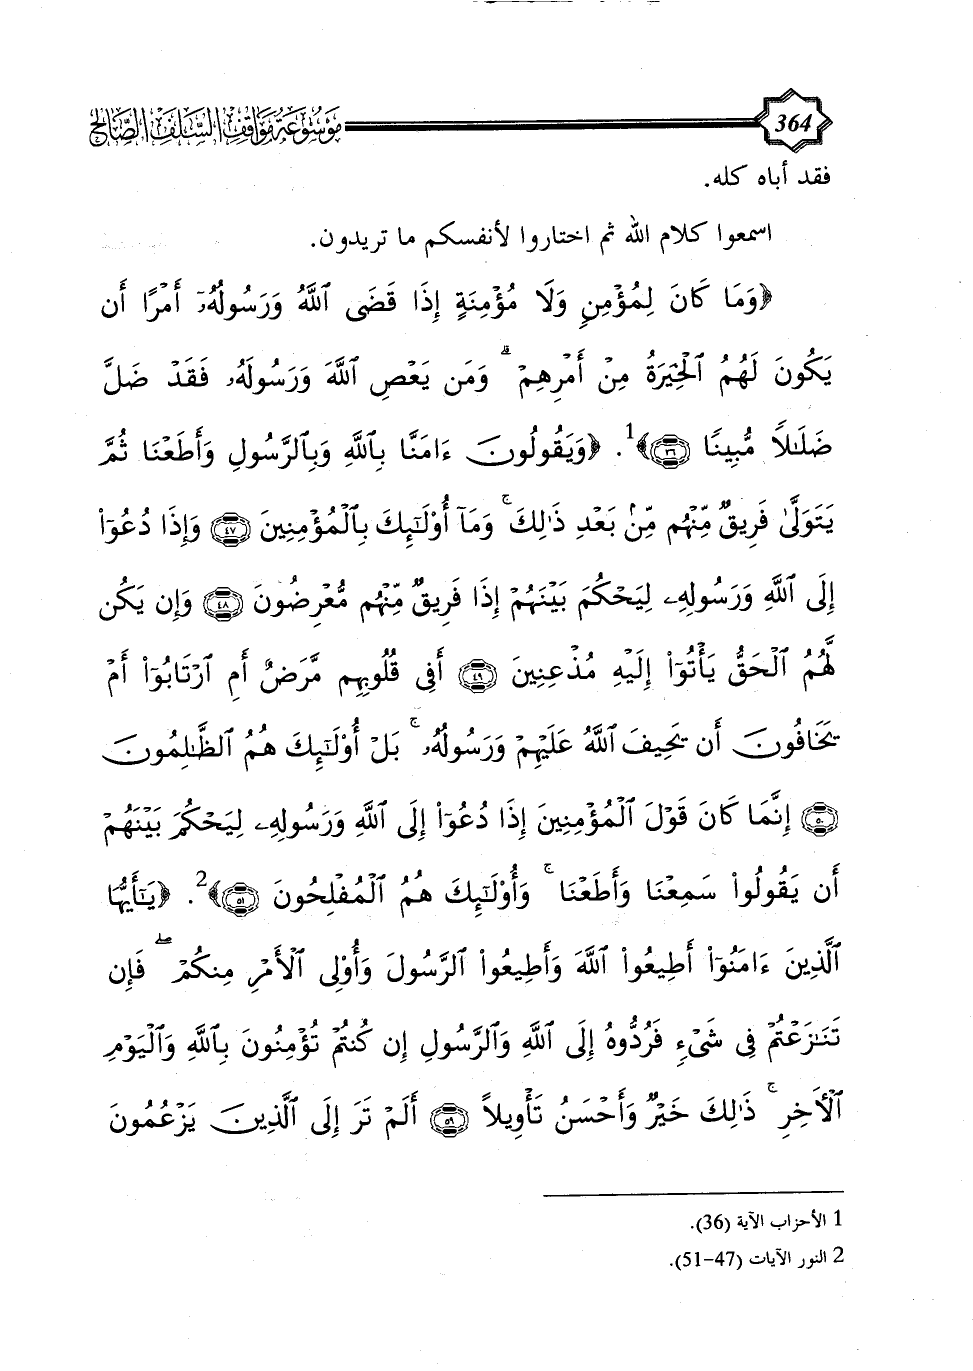 364 موسوعة مواقف السلف الصالح
فقد أباه كله.
اسمعوا كلام الله ثم اختاروا لأنفسكم ما تريدون.
﴿وَمَا كَانَ لِمُؤْمِنٍ وَلَا مُؤْمِنَةٍ إِذَا قَضَى ٱللَّهُ وَرَسُولُهُۥٓ أَمْرًا أَن
يَكُونَ لَهُمُ ٱلْخِيَرَةُ مِنْ أَمْرِهِمْ ۗ وَمَن يَعْصِ ٱللَّهَ وَرَسُولَهُۥ فَقَدْ ضَلَّ
ضَلَٰلًا مُّبِينًا ٣٦﴾1. ﴿وَيَقُولُونَ ءَامَنَّا بِٱللَّهِ وَبِٱلرَّسُولِ وَأَطَعْنَا ثُمَّ
يَتَوَلَّىٰ فَرِيقٌ مِّنْهُم مِّنۢ بَعْدِ ذَٰلِكَ ۚ وَمَآ أُو۟لَٰٓئِكَ بِٱلْمُؤْمِنِينَ ٤٧ وَإِذَا دُعُوٓا۟
إِلَى ٱللَّهِ وَرَسُولِهِۦ لِيَحْكُمَ بَيْنَهُمْ إِذَا فَرِيقٌ مِّنْهُم مُّعْرِضُونَ ٤٨ وَإِن يَكُن
لَّهُمُ ٱلْحَقُّ يَأْتُوٓا۟ إِلَيْهِ مُذْعِنِينَ ٤٩ أَفِى قُلُوبِهِم مَّرَضٌ أَمِ ٱرْتَابُوٓا۟ أَمْ
يَخَافُونَ أَن يَحِيفَ ٱللَّهُ عَلَيْهِمْ وَرَسُولُهُۥ ۚ بَلْ أُو۟لَٰٓئِكَ هُمُ ٱلظَّٰلِمُونَ
٥٠ إِنَّمَا كَانَ قَوْلَ ٱلْمُؤْمِنِينَ إِذَا دُعُوٓا۟ إِلَى ٱللَّهِ وَرَسُولِهِۦ لِيَحْكُمَ بَيْنَهُمْ
أَن يَقُولُوا۟ سَمِعْنَا وَأَطَعْنَا ۚ وَأُو۟لَٰٓئِكَ هُمُ ٱلْمُفْلِحُونَ ٥١﴾2. ﴿يَٰٓأَيُّهَا
ٱلَّذِينَ ءَامَنُوٓا۟ أَطِيعُوا۟ ٱللَّهَ وَأَطِيعُوا۟ ٱلرَّسُولَ وَأُو۟لِى ٱلْأَمْرِ مِنكُمْ ۖ فَإِن
تَنَٰزَعْتُمْ فِى شَىْءٍ فَرُدُّوهُ إِلَى ٱللَّهِ وَٱلرَّسُولِ إِن كُنتُمْ تُؤْمِنُونَ بِٱللَّهِ وَٱلْيَوْمِ
ٱلْأَخِرِ ۚ ذَٰلِكَ خَيْرٌ وَأَحْسَنُ تَأْوِيلًا ٥٩ أَلَمْ تَرَ إِلَى ٱلَّذِينَ يَزْعُمُونَ
1 الأحزاب الآية (36).
2 النور الآيات (47-51).